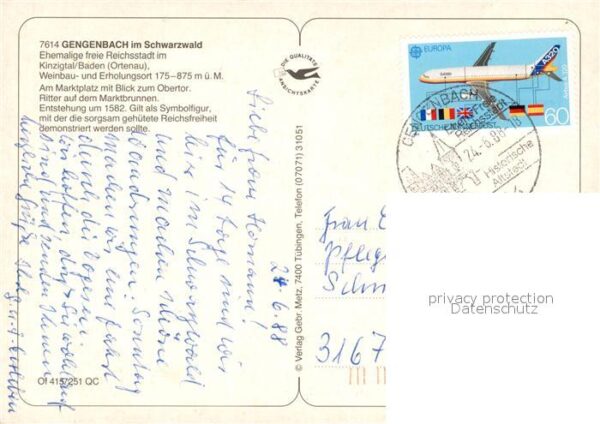 7614 GENGENBACH im Schwarzwald
Ehemalige freie Reichsstadt im
Kinzigtal/Baden (Ortenau),
Weinbau- und Erholungsort 175–875 m ü. M.
Am Marktplatz mit Blick zum Obertor.
Ritter auf dem Marktbrunnen.
Entstehung um 1582. Gilt als Symbolfigur,
mit der die sorgsam gehütete Reichsfreiheit
demonstriert werden sollte.
DIE QUALITÄTS
ANSICHTSKARTE
© Verlag Gebr. Metz, 7400 Tübingen, Telefon (07071) 31051
Of 415/251 QC
24.6.88
Liebe Frau Hermann!
Für 14 Tage sind wir
hier im Schwarzwald
und machen schöne
Wanderungen. Sonntag
machen wir eine Fahrt
durch die Vogesen.
Wir hoffen, daß es
und senden Ihnen
Grüße
EUROPA
A320
DEUTSCHE BUNDESPOST
60
GENGENBACH
24.-6.88
Historische
Altstadt
Frau
Pfleg
Schm
3167
privacy protection
Datenschutz